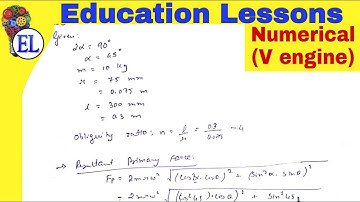 Education Lessons
EL
Numerical
(V engine)
Given:
2α = 90°
α = 45°
m = 10 kg
r = 75 mm
= 0.075 m
l = 300 mm
= 0.3 m
obliquity ratio; n = l/r = 0.3/0.075 = 4
→ Resultant Primary Force:
Fp = 2mrω² √(cos²α·cosθ)² + (sin²α·sinθ)²
= 2mrω² √(cos²45)·cosθ)² + sin²45